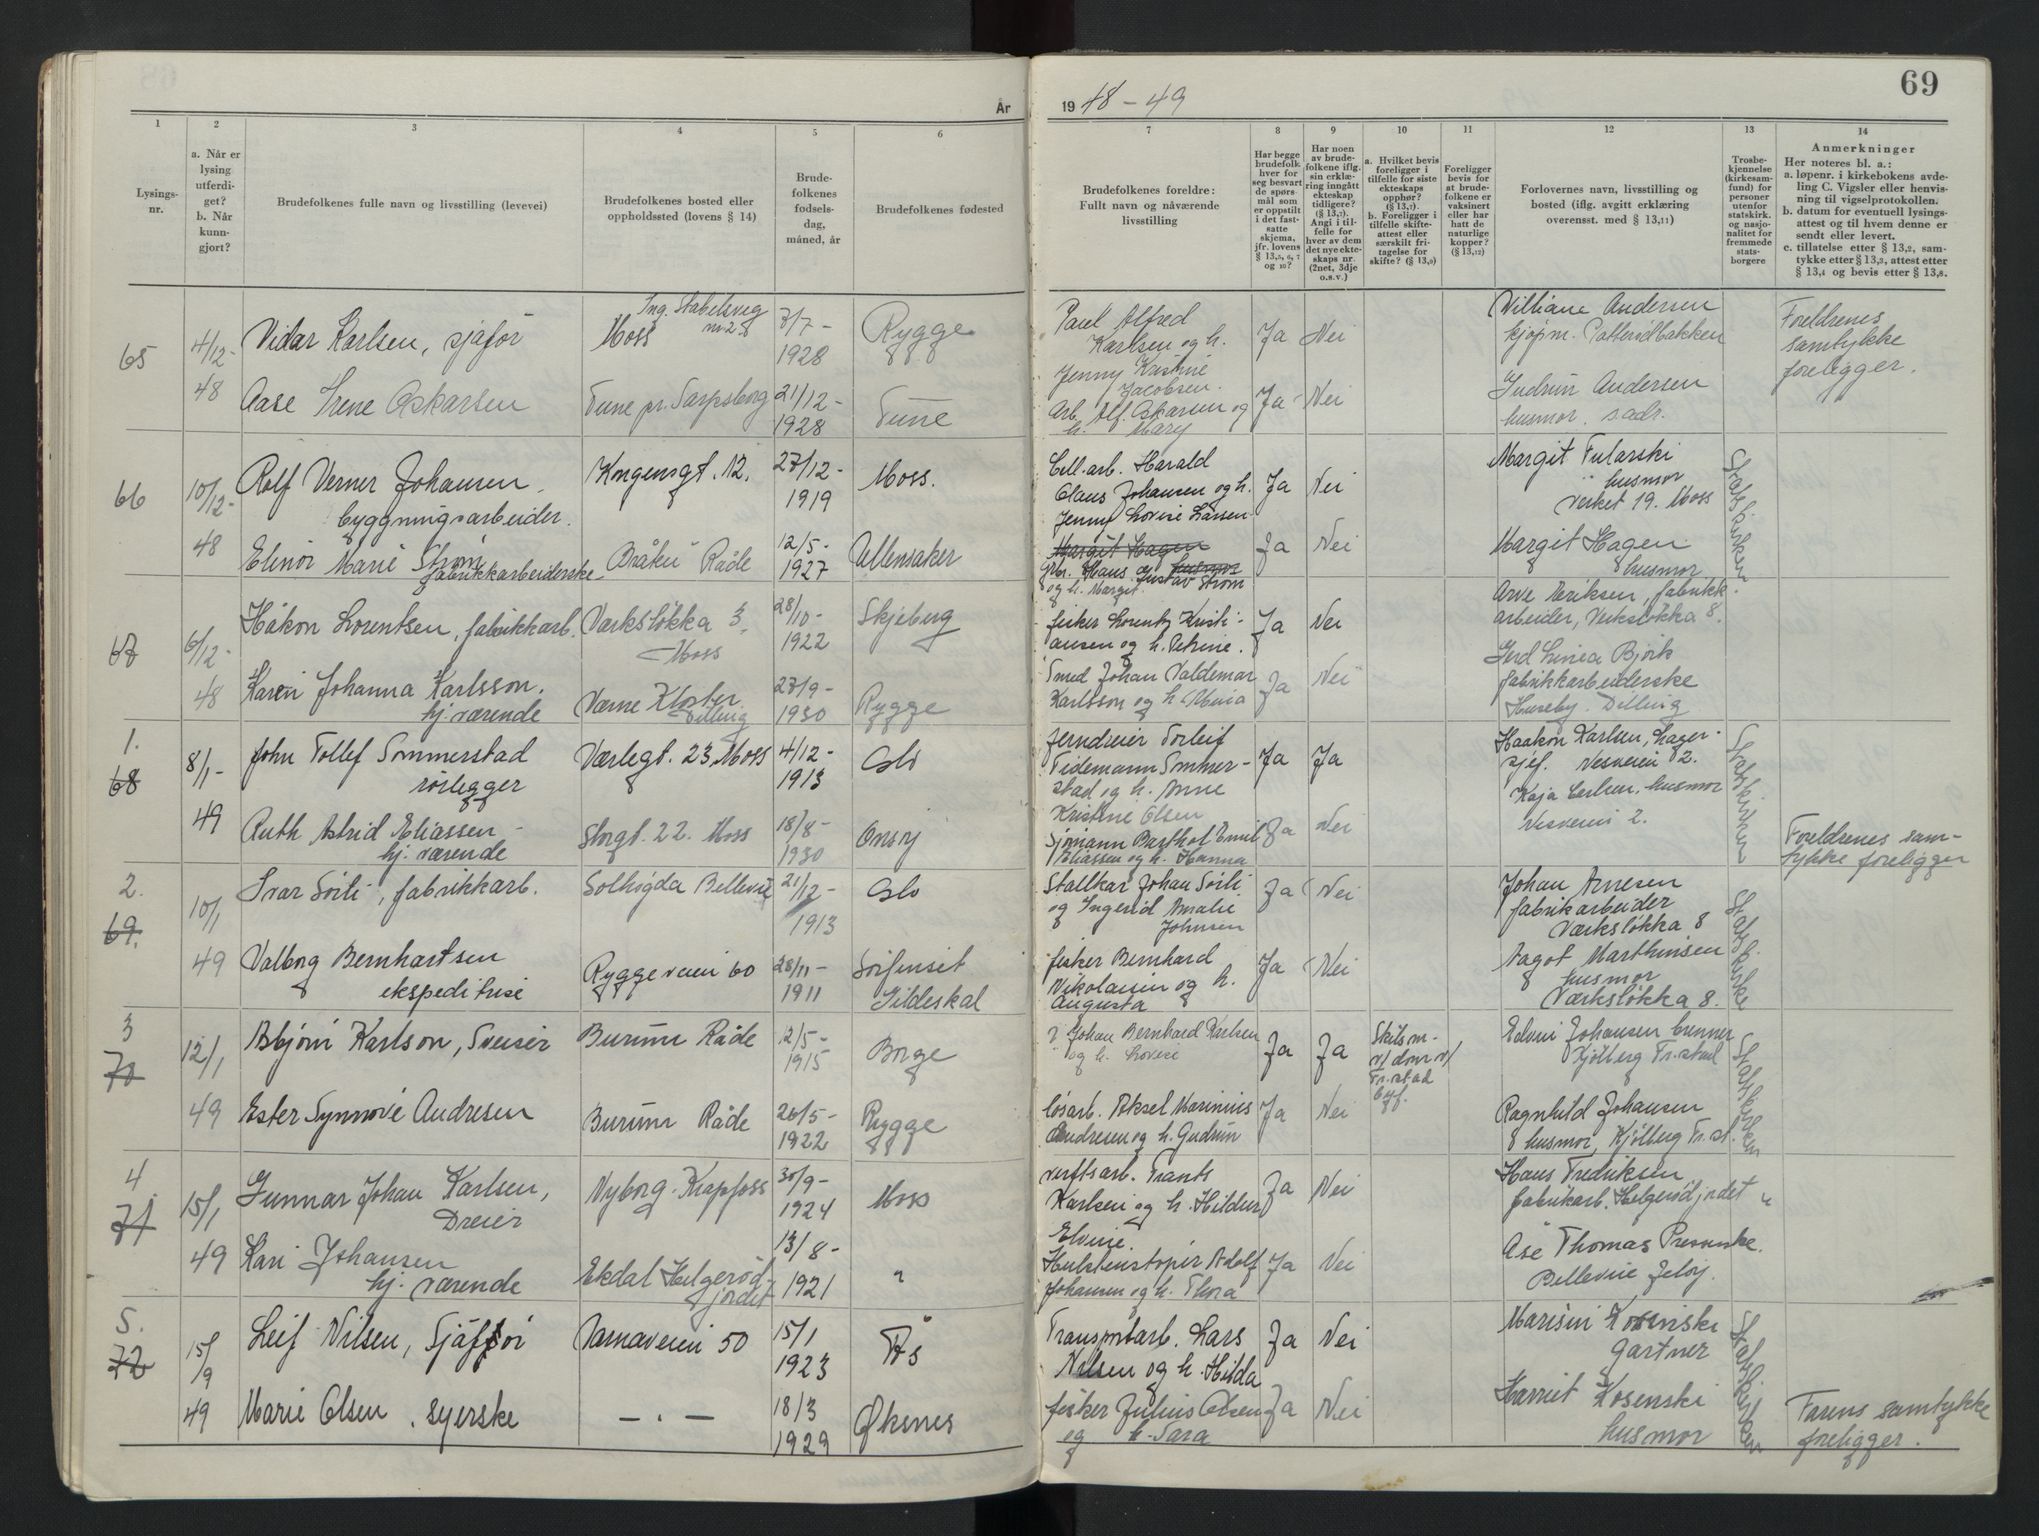 69
År
19 48 – 49
1
2
3
4
5
6
7
8
9
10
11
12
13
14
Lysings-
nr.
a. Når er
lysing
utferdi-
get?
b. Når
kunn-
gjort?
Brudefolkenes fulle navn og livsstilling (levevei)
Brudefolkenes bosted eller
oppholdssted (lovens § 14)
Brude-
folkenes
fødsels-
dag,
måned, år
Brudefolkenes fødested
Brudefolkenes foreldre:
Fullt navn og nåværende
livsstilling
Har begge
brudefolk
hver for
seg besvart
de spørs-
mål som
er oppstilt
i det fast-
satte
skjema,
jfr. lovens
§ 13,5, 6, 7
og 10?
Har noen
av brude-
folkene iflg.
sin erklæ-
ring inngått
ekteskap
tidligere?
(§ 13,7).
Angi i til-
felle for
hver av dem
det nye ekte-
skaps nr.
(2net, 3dje
o.s.v.)
a. Hvilket bevis
foreligger i
tilfelle for siste
ekteskaps
opphør?
(§ 13,7).
b. Foreligger i
tilfelle skifte-
attest eller
særskilt fri-
tagelse for
skifte? (§ 13,9)
Foreligger
bevis for
at brude-
folkene er
vaksinert
eller har
hatt de
naturlige
kopper?
(§ 13,12)
Forlovernes navn, livsstilling og
bosted (iflg. avgitt erklæring
overensst. med § 13,11)
Trosbe-
kjennelse
(kirkesam-
fund) for
personer
utenfor
statskirk.
og nasjo-
nalitet for
fremmede
stats-
borgere
Anmerkninger
Her noteres bl. a.:
a. løpenr. i kirkebokens avde-
ling C. Vigsler eller henvis-
ning til vigselprotokollen.
b. datum for eventuell lysings-
attest og til hvem denne er
sendt eller levert.
c. tillatelse etter § 13,2, sam-
tykke etter § 13,3, attest etter
§ 13,4 og bevis etter § 13,8.
65
4/12-
48
Vidar Karlsen, sjåfør
Ing. Stabelsveg
nr 28
Moss
3/7 -
1928
Rygge
Paul Alfred
Karlsen og h.
Jenny Kristine
Jacobsen.
Ja
Nei
Andersen
kjøpm.
Foreldrenes
samtykke
foreligger.
Aase Irene Oskarsen
Tune pr. Sarpsborg
21/12 -
1928
Tune
Arb. Alf. Oskarsen og
h. Mary
Ja
Nei
Gudrun Andersen
husmor. s adr.
66
10/12-
48
Rolf Verner Johansen
byggningsarbeider.
Kongensgt. 12.
27/12 -
1919
Moss.
Cell. arb. Harald
Claus Johansen og h.
Jenny Lovise Larsen
Ja
Nei
Margit Fularski
husmor
Verket 19. Moss
Statskirken
Elinor Marie Strøm
fabrikkarbeiderske
Bråten Råde
12/5 -
1927
Ullensaker
Margit Hagen
husmor
Hans Gustav Strøm
og h. Margit
Ja
Nei
Margit Hagen
husmor
67
6/12-
48
Håkon Lorentsen, fabrikkarb.
Værksløkka 3,
Moss
28/10 -
1922
Skjeberg
fisker Lorentz Kristi-
ansen og h. Petrine.
Ja
Nei
Arve Eriksen, fabrikk.
arbeider, Verksløkka 8.
Karin Johanna Karlsson.
hj. værende
Værne Kloster
Dilling
27/9 -
1930
Rygge
Smed Johan Valdemar
Karlsson og h. Maria
Ja
Nei
Gerd Linea Bjørk
fabrikkarbeiderske
Huseby. Dilling
1.
68
8/1 -
49
John Tollef Sommerstad
rørlegger
Værlegt. 23, Moss
4/12 -
1913
Oslo
Jerndreier Torleif
Tidemann Sommer-
stad og h. Anne
Kristine Olsen
Ja
Ja
Haakon Karlsen, Lager-
sjef. Nesveien 2.
Statskirken
Ruth Astrid Eliassen
hj. værende
Storgt. 22. Moss
18/8 -
1930
Onsøy
Sjømann Barthof Emil
Eliassen og h. Hanna
Ja
Nei
Kaja Carlsen, husmor
Nesveien 2.
Foreldrenes sam-
tykke foreligger
2.
69.
10/1
49
Ivar Sørli, fabrikkarb.
Solhøgda Bellevue
21/12 -
1913
Oslo
Stallkar Johan Sørli
og Ingerid Amalie
Johnsen
Ja
Nei
Johan Arnesen
fabrikarbeider
Værksløkka 8
Statskirken
Valborg Bernhartsen
ekspeditrise
Ryggeveien 60
28/11 -
1911
Sørfinset
Gildeskål
fisker Bernhard
Nikolaisen og h.
Augusta
Ja
Nei
Aagot Marthinsen
husmor
Værksløkka 8.
3
70
12/1
49
Asbjørn Karlson, Sveiser
Burum Råde
12/5 -
1915
Borge
Johan Bernhard Karlsen
og h. Lovise
Ja
Ja
Skilsm-
v/ dom v/
Fr.stad
byf.
Edvin Johansen brenner
Kjølberg Fr.stad
Statskirken
Ester Synnøve Andresen
Burum Råde
26/5 -
1922
Rygge
løsarb. Aksel Marinius
Andresen og h. Gudrun
Ja
Nei
Ragnhild Johansen
husmor, Kjølberg Fr.st.
4
71
15/1
49
Gunnar Johan Karlsen,
Dreier
Nyborg. Krapfoss
30/9 -
1924
Moss
verftsarb. Frants
Karlsen og h. Hildur
Elvine.
Ja
Nei
Hans Fredriksen
fabrikarb. Helgerødjordet
"
Kari Johansen
hj. værende
Ekdal Helgerød-
jordet
13/8 -
1921
"
Adolf
Johansen og h. Thora
Ja
Nei
Åse Thomas
Bellevue Jeløy.
5.
72
15/9
49
Leif Nilsen, Sjåfør
Varnaveien 50
15/1
1923
Ås
Transportarb. Lars
Nilsen og h. Hilda
Ja
Nei
Gartner
Statskirken
Marie Olsen, syerske
— . —
18/3
1929
Øksnes
fisker Julius Olsen
og h. Sara
Ja
Nei
Harriet Kosenski
husmor
Farens samtykke
foreligger.